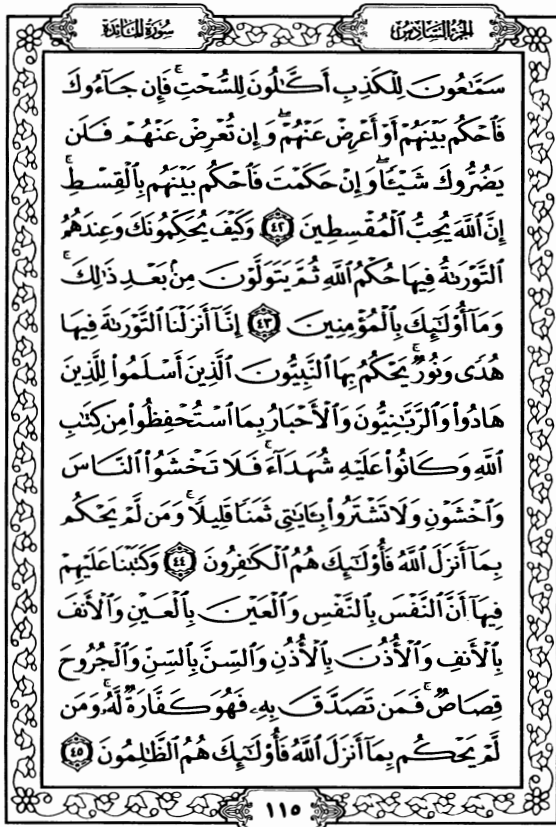 الجزء السادس
سورة المائدة
سَمَّٰعُونَ لِلْكَذِبِ أَكَّٰلُونَ لِلسُّحْتِ ۚ فَإِن جَآءُوكَ
فَٱحْكُم بَيْنَهُمْ أَوْ أَعْرِضْ عَنْهُمْ ۖ وَإِن تُعْرِضْ عَنْهُمْ فَلَن
يَضُرُّوكَ شَيْـًٔا ۖ وَإِنْ حَكَمْتَ فَٱحْكُم بَيْنَهُم بِٱلْقِسْطِ ۚ
إِنَّ ٱللَّهَ يُحِبُّ ٱلْمُقْسِطِينَ ۝٤٢ وَكَيْفَ يُحَكِّمُونَكَ وَعِندَهُمُ
ٱلتَّوْرَىٰةُ فِيهَا حُكْمُ ٱللَّهِ ثُمَّ يَتَوَلَّوْنَ مِنۢ بَعْدِ ذَٰلِكَ ۚ
وَمَآ أُو۟لَٰٓئِكَ بِٱلْمُؤْمِنِينَ ۝٤٣ إِنَّآ أَنزَلْنَا ٱلتَّوْرَىٰةَ فِيهَا
هُدًى وَنُورٌ ۚ يَحْكُمُ بِهَا ٱلنَّبِيُّونَ ٱلَّذِينَ أَسْلَمُوا۟ لِلَّذِينَ
هَادُوا۟ وَٱلرَّبَّٰنِيُّونَ وَٱلْأَحْبَارُ بِمَا ٱسْتُحْفِظُوا۟ مِن كِتَٰبِ
ٱللَّهِ وَكَانُوا۟ عَلَيْهِ شُهَدَآءَ ۚ فَلَا تَخْشَوُا۟ ٱلنَّاسَ
وَٱخْشَوْنِ وَلَا تَشْتَرُوا۟ بِـَٔايَٰتِى ثَمَنًا قَلِيلًا ۚ وَمَن لَّمْ يَحْكُم
بِمَآ أَنزَلَ ٱللَّهُ فَأُو۟لَٰٓئِكَ هُمُ ٱلْكَٰفِرُونَ ۝٤٤ وَكَتَبْنَا عَلَيْهِمْ
فِيهَآ أَنَّ ٱلنَّفْسَ بِٱلنَّفْسِ وَٱلْعَيْنَ بِٱلْعَيْنِ وَٱلْأَنفَ
بِٱلْأَنفِ وَٱلْأُذُنَ بِٱلْأُذُنِ وَٱلسِّنَّ بِٱلسِّنِّ وَٱلْجُرُوحَ
قِصَاصٌ ۚ فَمَن تَصَدَّقَ بِهِۦ فَهُوَ كَفَّارَةٌ لَّهُۥ ۚ وَمَن
لَّمْ يَحْكُم بِمَآ أَنزَلَ ٱللَّهُ فَأُو۟لَٰٓئِكَ هُمُ ٱلظَّٰلِمُونَ ۝٤٥
١١٥